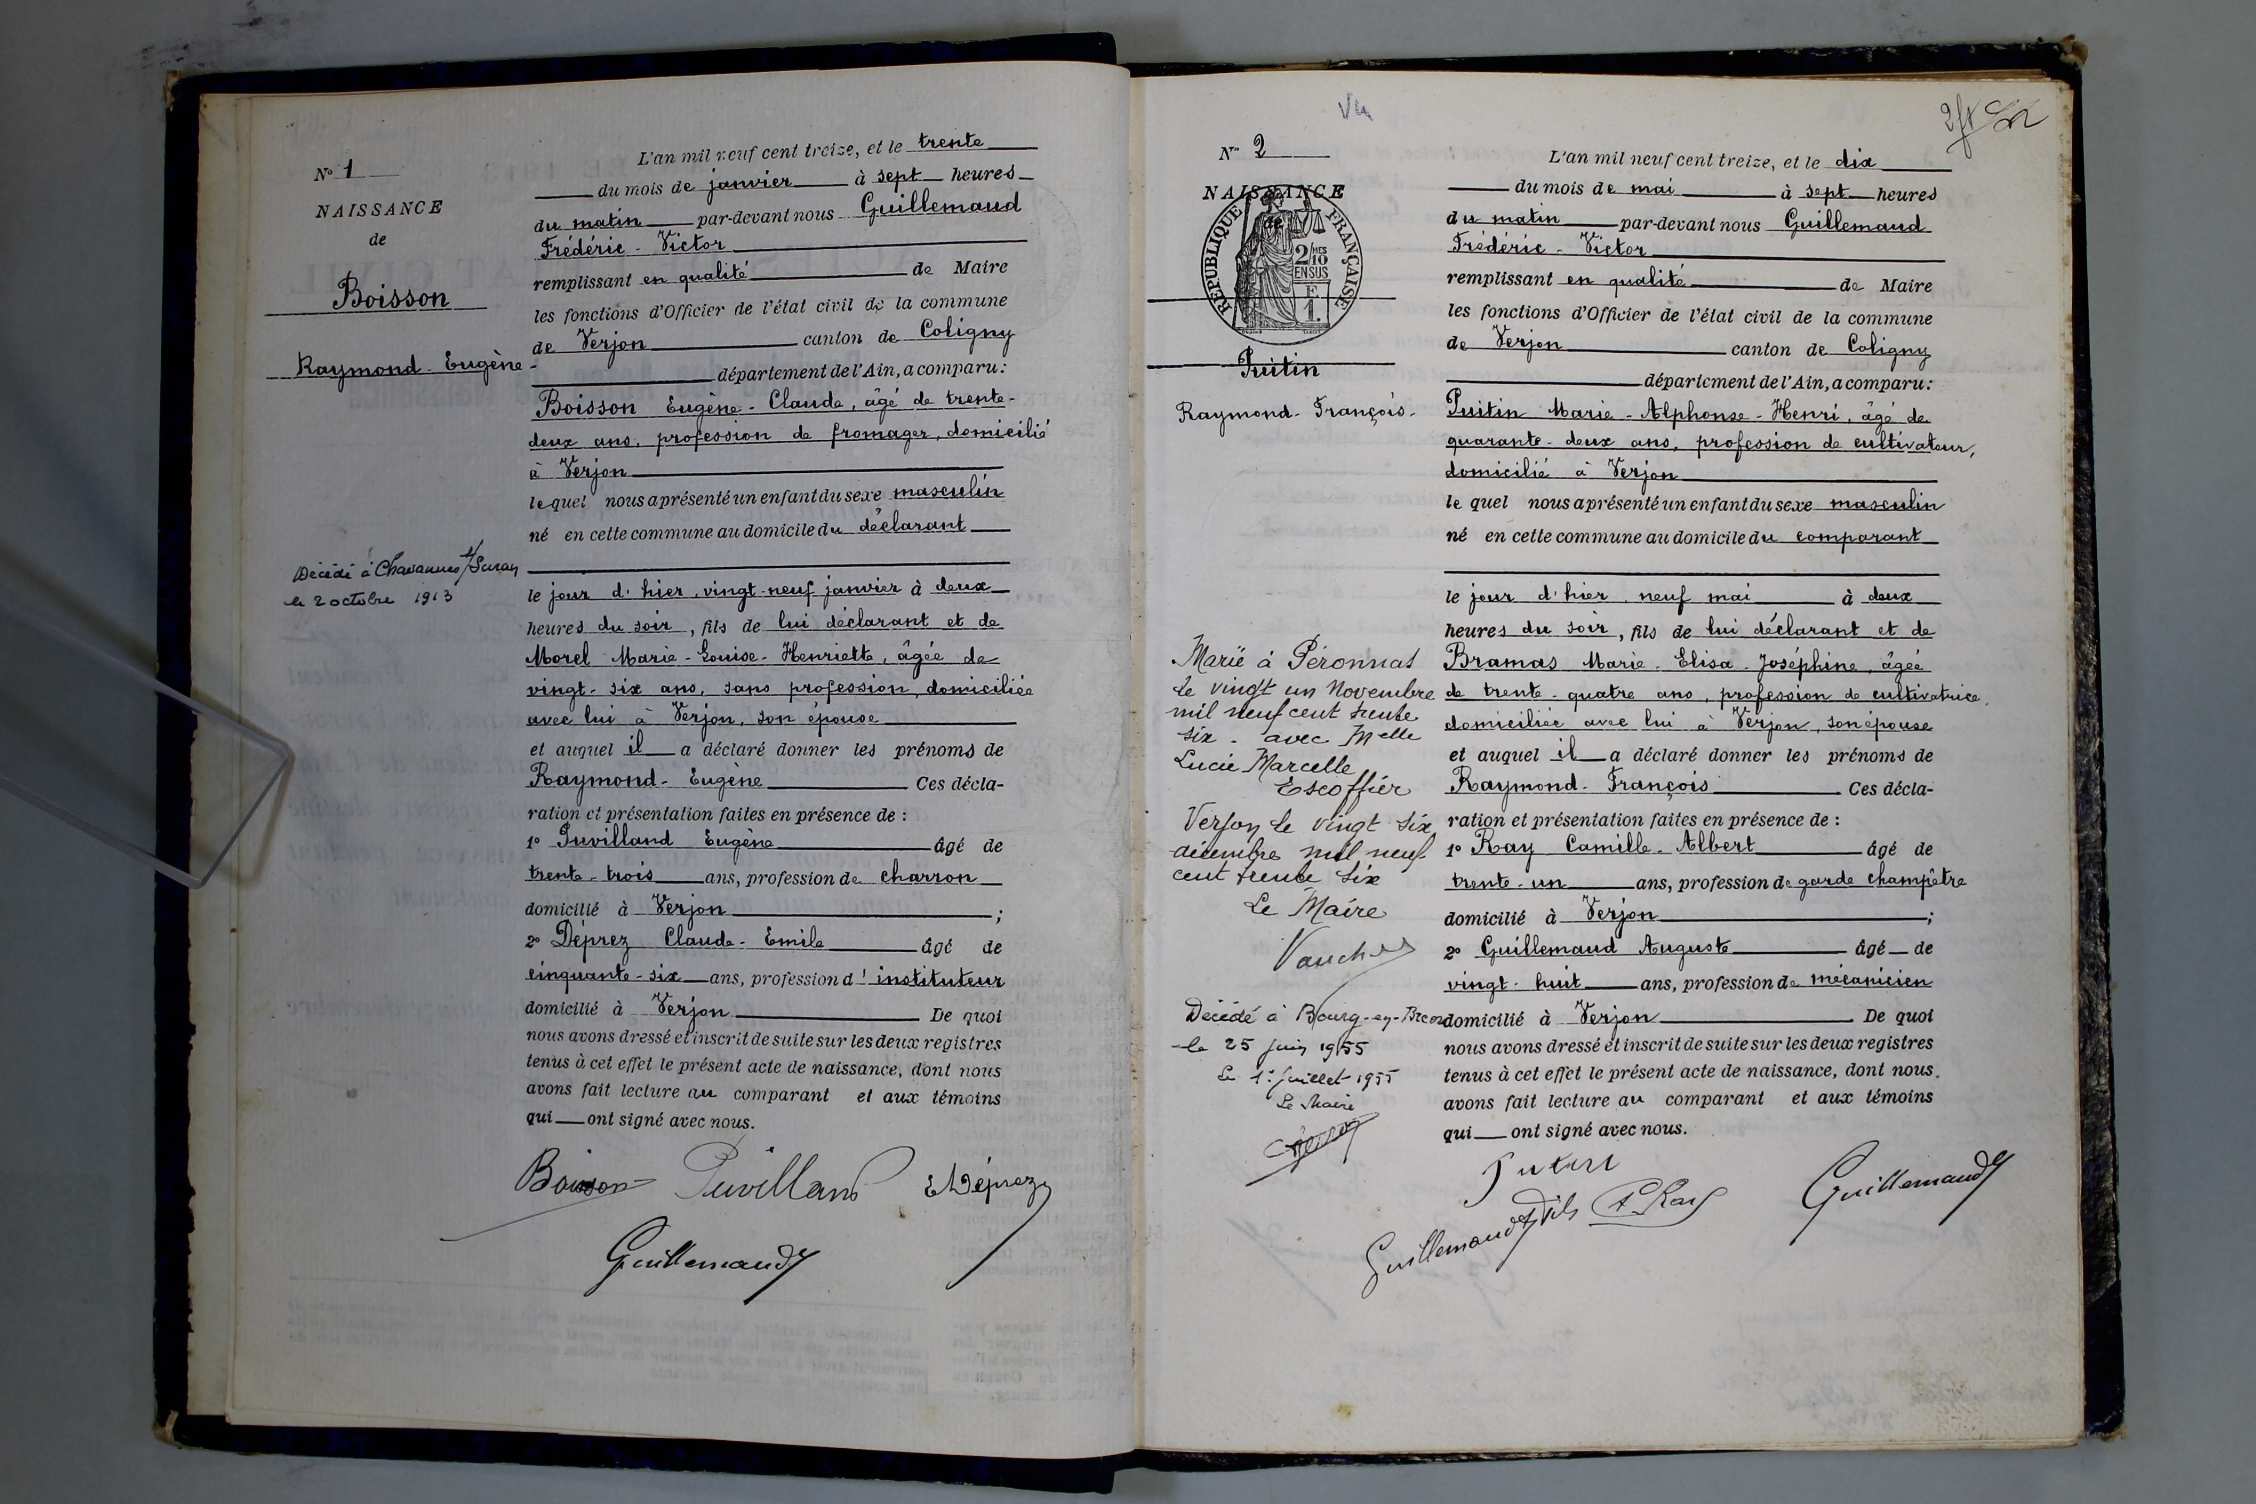 No 1
NAISSANCE
de
Boisson
Raymond-Eugène-
Décédé à Chavannes s/Suran
le 2 octobre 1913
L'an mil neuf cent treize, et le trente
du mois de janvier à sept heures
du matin par-devant nous Guillemaud
Frédéric-Victor
remplissant en qualité de Maire
les fonctions d'Officier de l'état civil de la commune
de Verjon canton de Coligny
département de l'Ain, a comparu:
Boisson Eugène-Claude, âgé de trente-
deux ans, profession de fromager, domicilié
à Verjon
lequel nous a présenté un enfant du sexe masculin
né en cette commune au domicile du déclarant
le jour d'hier, vingt-neuf janvier à deux
heures du soir, fils de lui déclarant et de
Morel Marie-Louise-Henriette, âgée de
vingt-six ans, sans profession, domiciliée
avec lui à Verjon, son épouse
et auquel il a déclaré donner les prénoms de
Raymond-Eugène Ces décla-
ration et présentation faites en présence de :
1º Puvilland Eugène âgé de
trente-trois ans, profession de charron
domicilié à Verjon ;
2º Déprez Claude-Emile âgé de
cinquante-six ans, profession d'instituteur
domicilié à Verjon De quoi
nous avons dressé et inscrit de suite sur les deux registres
tenus à cet effet le présent acte de naissance, dont nous
avons fait lecture au comparant et aux témoins
qui ont signé avec nous.
Boisson Puvilland E Déprez
Guillemaud
Vu
No 2
NAISSANCE
de
RÉPUBLIQUE FRANÇAISE
2/10 MES
EN SUS
F.
1.
Puitin
Raymond-François-
Marié à Péronnas
le vingt un Novembre
mil neuf cent trente
six. avec Melle
Lucie Marcelle
Escoffier
Verjon le vingt six
décembre mil neuf
cent trente six
Le Maire
Décédé à Bourg-en-Bresse
le 25 juin 1955
Le 1er juillet 1955
Le Maire
L'an mil neuf cent treize, et le dix
du mois de mai à sept heures
du matin par-devant nous Guillemaud
Frédéric-Victor
remplissant en qualité de Maire
les fonctions d'Officier de l'état civil de la commune
de Verjon canton de Coligny
département de l'Ain, a comparu:
Puitin Marie-Alphonse-Henri, âgé de
quarante-deux ans, profession de cultivateur,
domicilié à Verjon
lequel nous a présenté un enfant du sexe masculin
né en cette commune au domicile du comparant
le jour d'hier neuf mai à deux
heures du soir, fils de lui déclarant et de
Bramas Marie-Elisa-Joséphine, âgée
de trente-quatre ans, profession de cultivatrice,
domiciliée avec lui à Verjon, son épouse
et auquel il a déclaré donner les prénoms de
Raymond-François Ces décla-
ration et présentation faites en présence de :
1º Ray Camille-Albert âgé de
trente-un ans, profession de garde champêtre
domicilié à Verjon ;
2º Guillemaud Auguste âgé de
vingt-huit ans, profession de mécanicien
domicilié à Verjon De quoi
nous avons dressé et inscrit de suite sur les deux registres
tenus à cet effet le présent acte de naissance, dont nous
avons fait lecture au comparant et aux témoins
qui ont signé avec nous.
Puitin
Guillemaud fils Ray Guillemaud